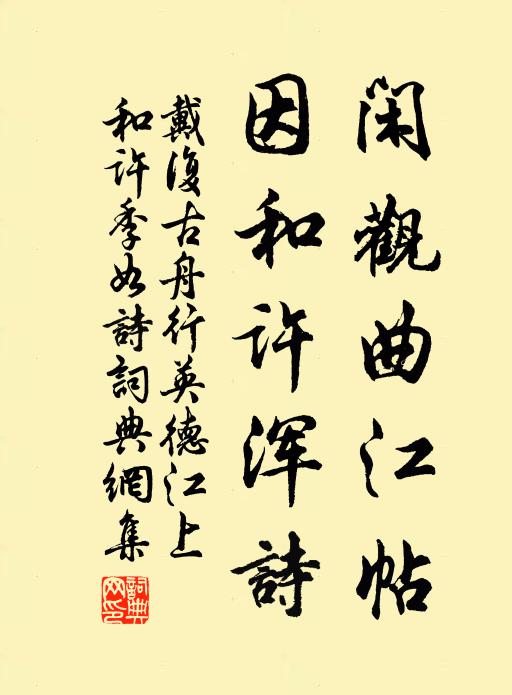 闲觀曲江帖
因和许浑詩
戴復古舟行英德江上
和许季如詩詞典網集
詞典网印